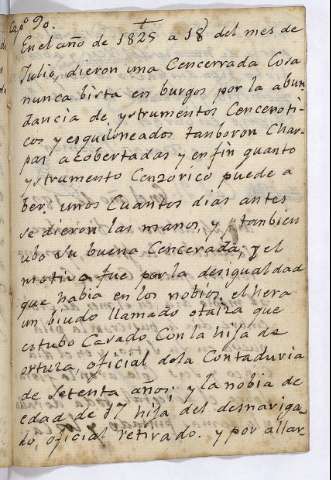 Capº 90.
En el año de 1825 a 18 del mes de
Julio, dieron una Cencerrada Cosa
nunca bista en burgos por la abun
dancia de ystrumentos Cenceroti
cos y esquiloneados tanboron Char
pas acobertadas y en fin quanto
ystrumento Cenzorico puede a
ber. unos Cuantos dias antes
se dieron las manos, y tanbien
ubo su buena Cencerrada; y el
motivo fue por la desigualdad
que habia en los nobios. el hera
un biudo llamado otaiza que
estubo Casado Con la hija de
ortula, oficial dela Contaduria
de Setenta años; y la nobia de
edad de 17 hija del desnariga
do, oficial retirado. y por allar-